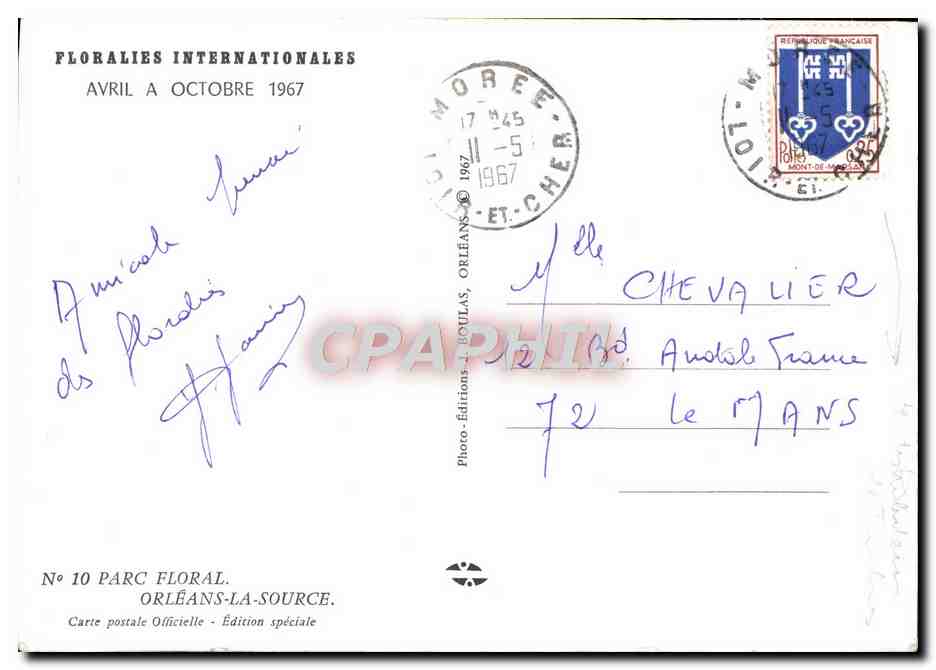 FLORALIES INTERNATIONALES
AVRIL A OCTOBRE 1967
Amicale
des floralies
MOREE
17 H 45
11 - 5
1967
LOIR - ET - CHER
REPUBLIQUE FRANÇAISE
Postes 0,25
MONT-DE-MARSAN
MOREE
H 45
11 - 5
1967
LOIR - ET - CHER
Photo-Éditions J. BOULAS, ORLÉANS © 1967
Mlle
CHEVALIER
12 Bd. Anatole France
72 Le MANS
CPAPHIL
Nº 10 PARC FLORAL.
ORLÉANS-LA-SOURCE.
Carte postale Officielle - Édition spéciale